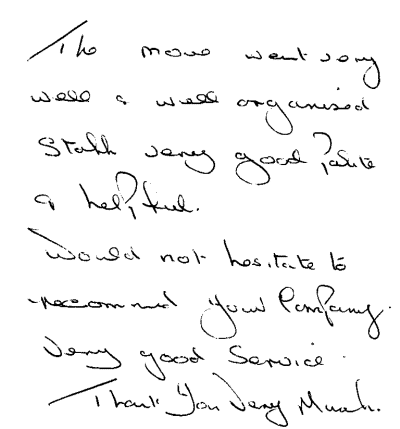 The move went very
well & well organised
Staff very good Polite
& helpful.
Would not hesitate to
recommend your Company.
Very good Service.
Thank You Very Much.